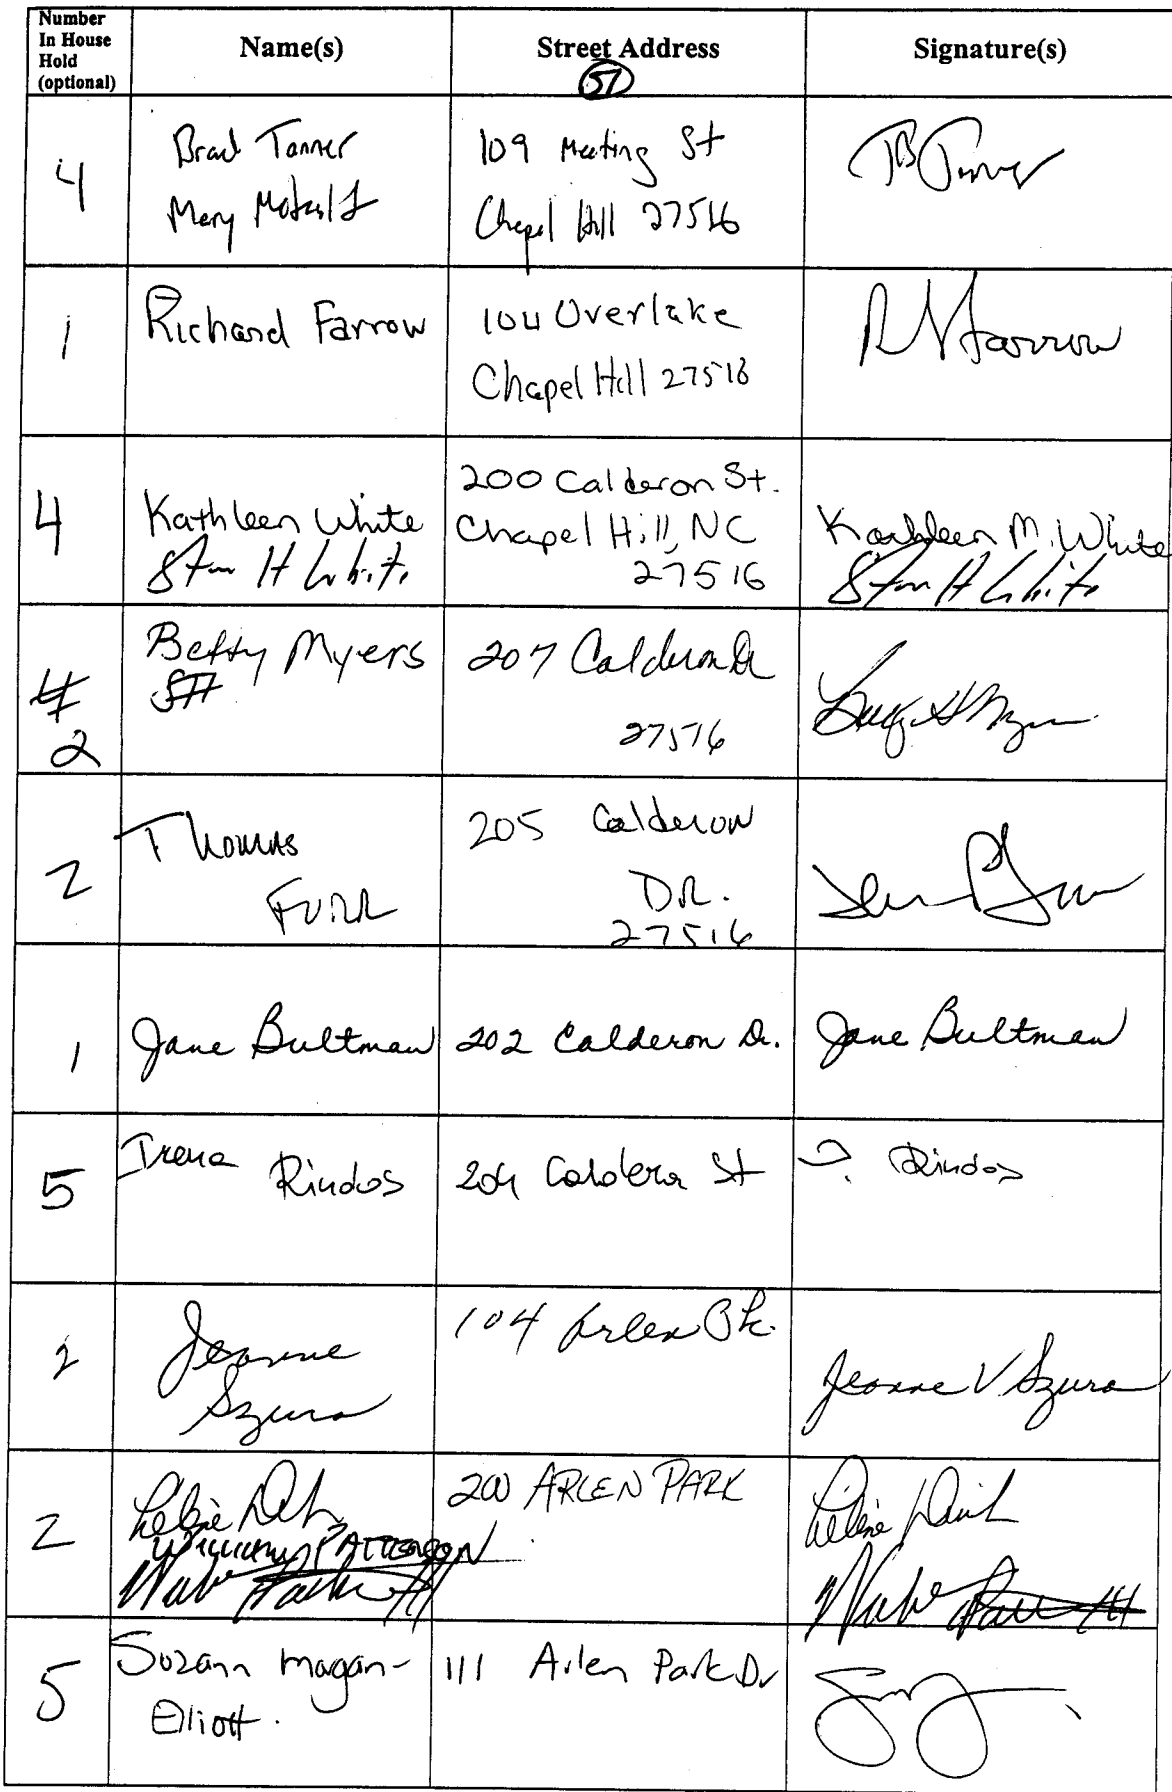 Number
In House
Hold
(optional)
Name(s)
Street Address
Signature(s)
57
4
Brad Tanner
Mary
109 Meeting St
Chapel Hill 27516
1
Richard Farrow
104 Overlake
Chapel Hill 27516
R Farrow
4
Kathleen White
Stan H White
200 Calderon St.
Chapel Hill, NC
27516
Kathleen M. White
Stan H White
2
Betty Myers
207 Calderon Dr
27516
2
Thomas
FURR
205 Calderon
DR.
27516
1
Jane Bultman
202 Calderon Dr.
Jane Bultman
5
Irena Rindos
204 Caldera St
I. Rindos
2
Jeanne
Szura
104 Arlen Pk.
Jeanne V Szura
2
William PATTERSON
200 ARLEN PARK
5
Suzann Magan-
Elliott.
111 Arlen Park Dr